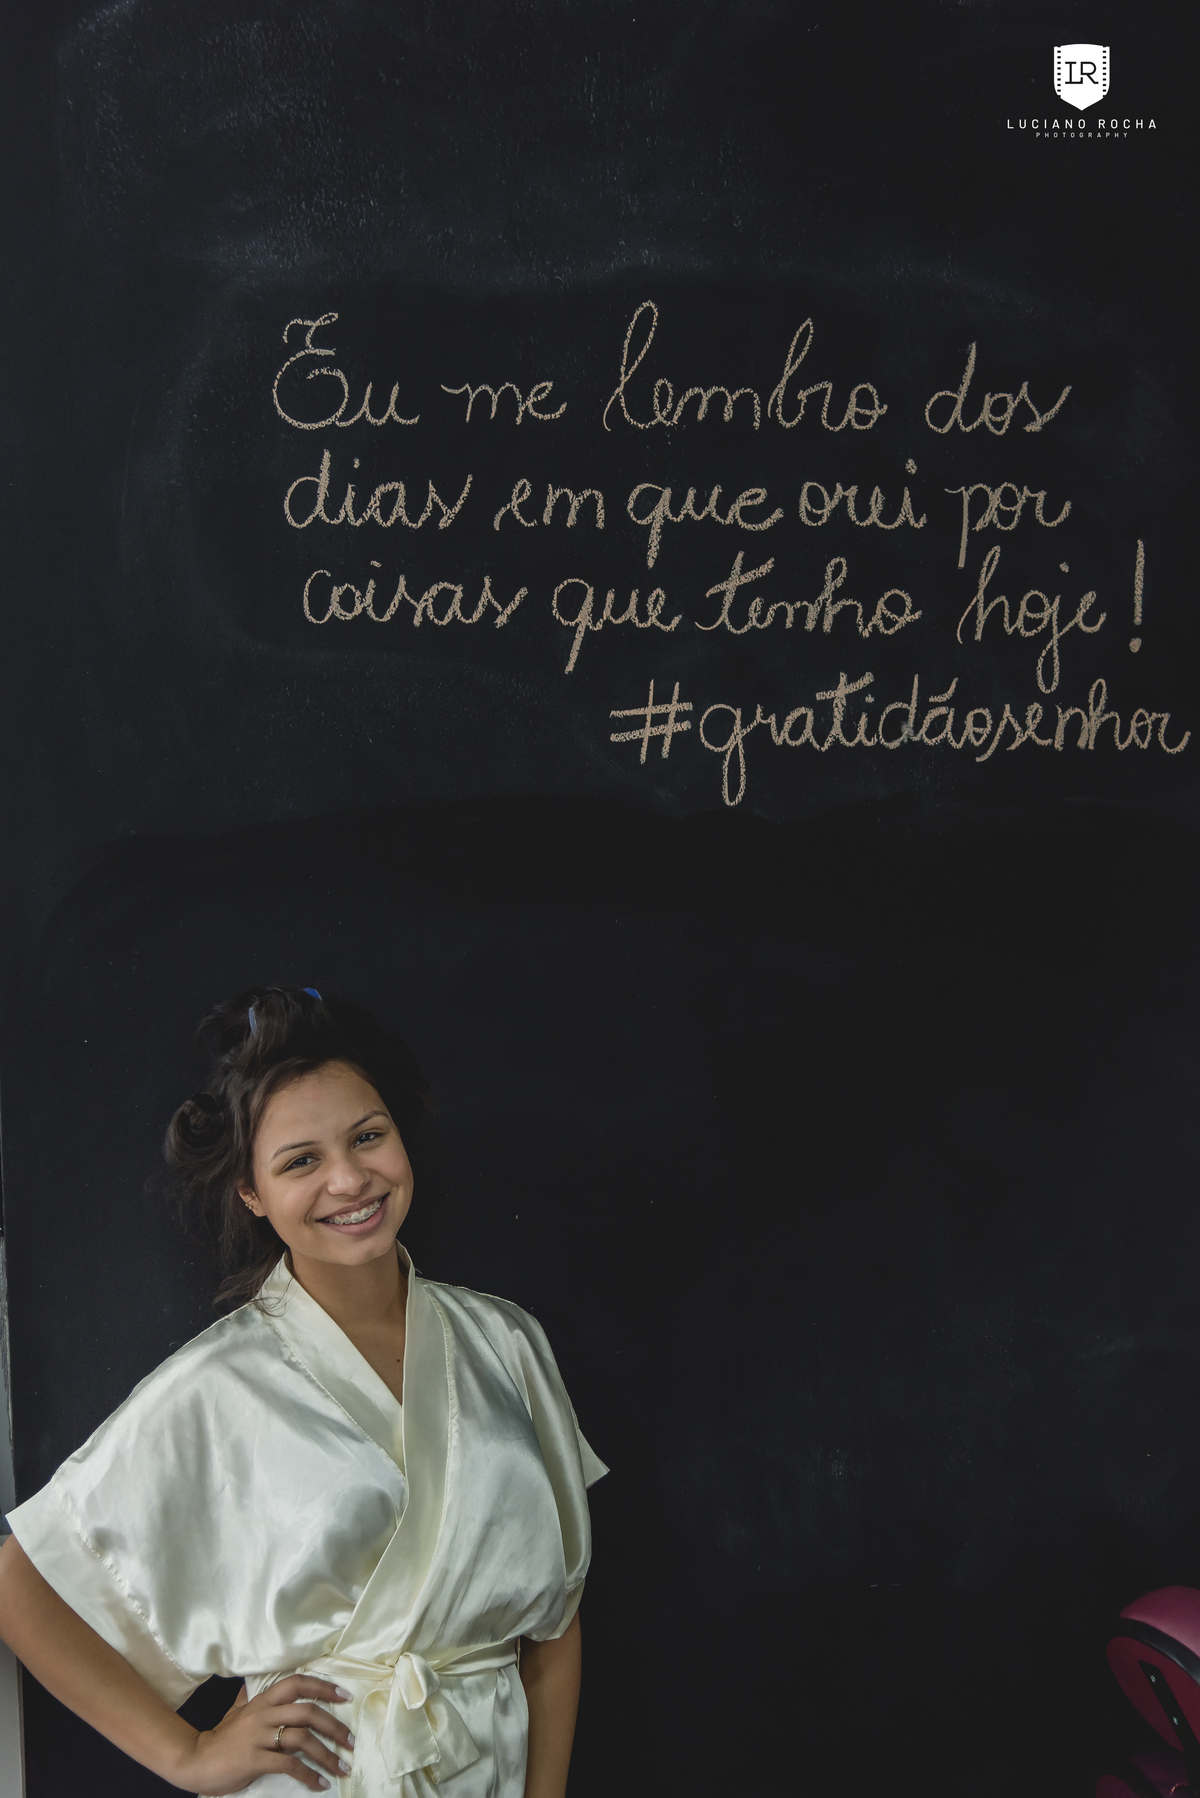 LR
LUCIANO ROCHA
PHOTOGRAPHY
Eu me lembro dos
dias em que orei por
coisas que tenho hoje!
#gratidãosenhor